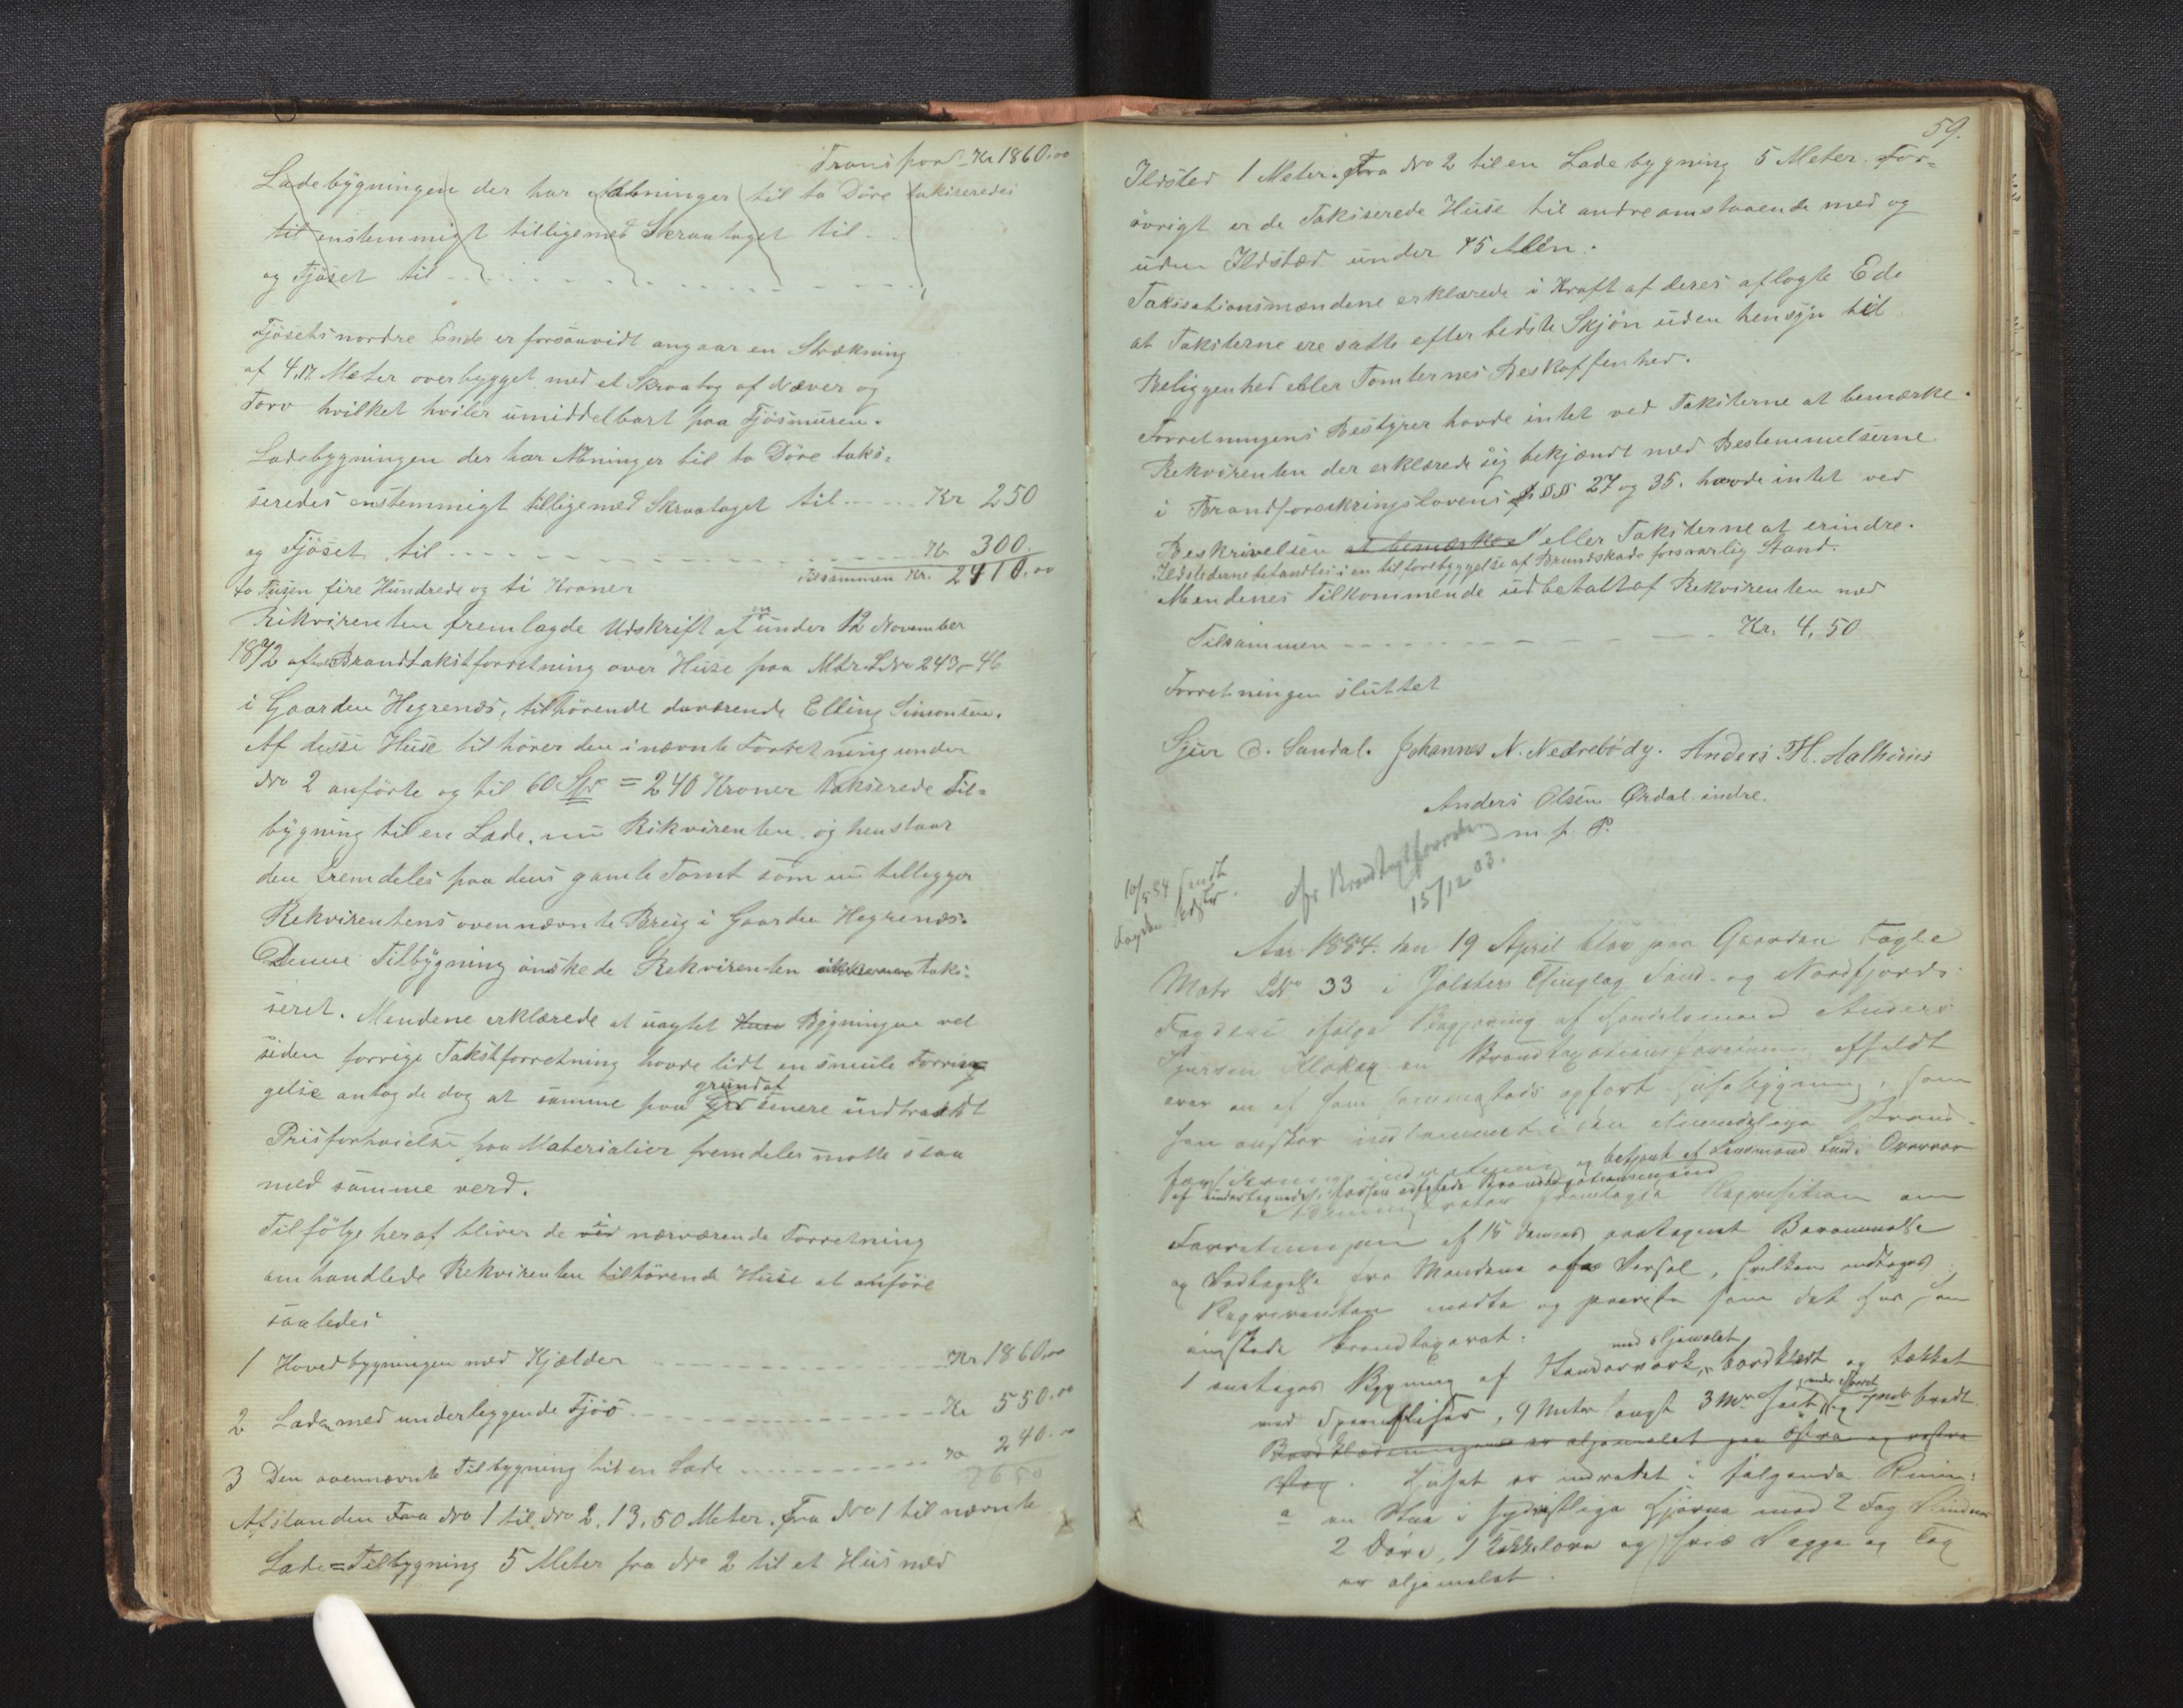 Transport Kr 1860.00
Ladebygningen der har Aabninger til to Döre takseredes
til enstemmigt tilligemed Skraataget til
og Fjöset til
Fjösets nordre Ende er forsaavidt angaar en Strækning
af 4.17. Meter overbygget med et Skraatag af Næver og
Torv hvilket hviler umiddelbart paa Fjösmuren.
Ladebygningen der har Abninger til to Döre taks-
seredes enstemmigt tilligemed Skraataget til Kr 250
og Fjöset til Kr 300.
Tilsammen Kr. 2410.00
to Tusen fire Hundrede og ti Kroner
Rikvirenten fremlagde Udskrift af en under 12 November
1872 Brandtakstforretning over Huse paa Matr. L No 243 - 46
i Gaarden Hegrenæs, tilhörende daværende Elling Simonsen.
Af disse Huse tilhörer den i nævnte Forretning under
No 2 anförte og til 60 Spd = 240 Kroner takserede Til-
bygning til en Lade, nu Rikvirenten og henstaar
den fremdeles paa dens gamle Tomt som nu tilligger
Rekvirentens ovennævnte Brug i Gaarden Hegrenæs.
Denne Tilbygning önskede Rekvirenten taks-
seret. Mendene erklærede at uagtet Huse Bygningen vel
siden forrige Takstforretning havde lidt en smule Forrin-
gelse antog de dog at samme paa grund af senere indtraadt
Prisforhöielse paa Materialier fremdeles matte staa
med samme verd.
Tilfölge heraf bliver de ved i nærværende Forretning
omhandlede Rekvirenten tilhörende Huse at anföre
saaledes
1 Hovedbygningen med Kjælder Kr 1860.00
2 Laden med underliggende Fjös Kr 550.00
3 Den ovennævnte Tilbygning til en Lade " 240.00
2650
Afstanden Fra No 1 til No 2. 13,50 Meter. Fra No 1 til nævnte
Lade=Tilbygning 5 Meter fra No 2 til et Hus med
59.
Ildsted 1 Meter. Fra No 2 til en Ladebygning 5 Meter. For-
övrigt er de Takserede Huse til andre omstaaende med og
uden Ildsted under 75 Alen.
Taksationsmændene erklærede i Kraft af deres aflagte Ede
at Taksterne ere satte efter bedste Skjön uden hensyn til
Beliggenhed eller Tomternes Beskaffenhed.
Forretningens Bestyrer havde intet ved Taksterne at bemærke.
Rekvirenten der erklærede sig bekjændt med Bestemmelserne
i Brandforsikringslovens §§ 27 og 35. havde intet ved
Beskrivelsen at bemærke eller Taksterne at erindre.
Ildstederne befandtes i en til forebyggelse af Brandskade forsvarlig Stand.
Mendenes Tilkommende udbetalt af Rekvirenten med
Tilsammen Kr. 4,50
Forretningen sluttet
Sjur O. Sandal. Johannes N. Nedrebö dy. Anders H. Aalhuus
Anders Olsen Ørdal indre.
m. f. P.
15/12 03.
10/5 84 sendt
Aar 1884. den 19 April blev paa Gaarden Fagle
Matr L No 33 i Jölsters Thinglag Sönd- og Nordfjords
Fogderi ifölge Begjæring af Handelsmand Anders
Sjursen Klakeg en Brandtaxationsforretning afholdt
over en af ham sammesteds opført Husebygning, som
han önsker indlemmet i den almindelige Brand-
forsikrings og betjent af Lensmand
af undertegnede Brandtaxationsmænd
fremlagde Requisition om
Forretningen af 15 dennes paategnet Berammelse
og Vedtagelse fra Mændene Varsel, hvilken
Requirenten mødte og paaviste som det Hus han
önskede Brandtaxeret:
1 enetages Bygning af Tömmerværk, med oljemalet bordklædt og tækket
med , 9 Meter langt 3 Mtr höit og 7 bredt
Bordklædningen er oljemalet paa östre og vestre
Væg. Huset er indredet i følgende Rum:
a en Stue i sydvestlige Hjörne med 2 Fag Vinduer
2 Döre, 1 Kakkelovn og Vægge og Tag
er oljemalet.